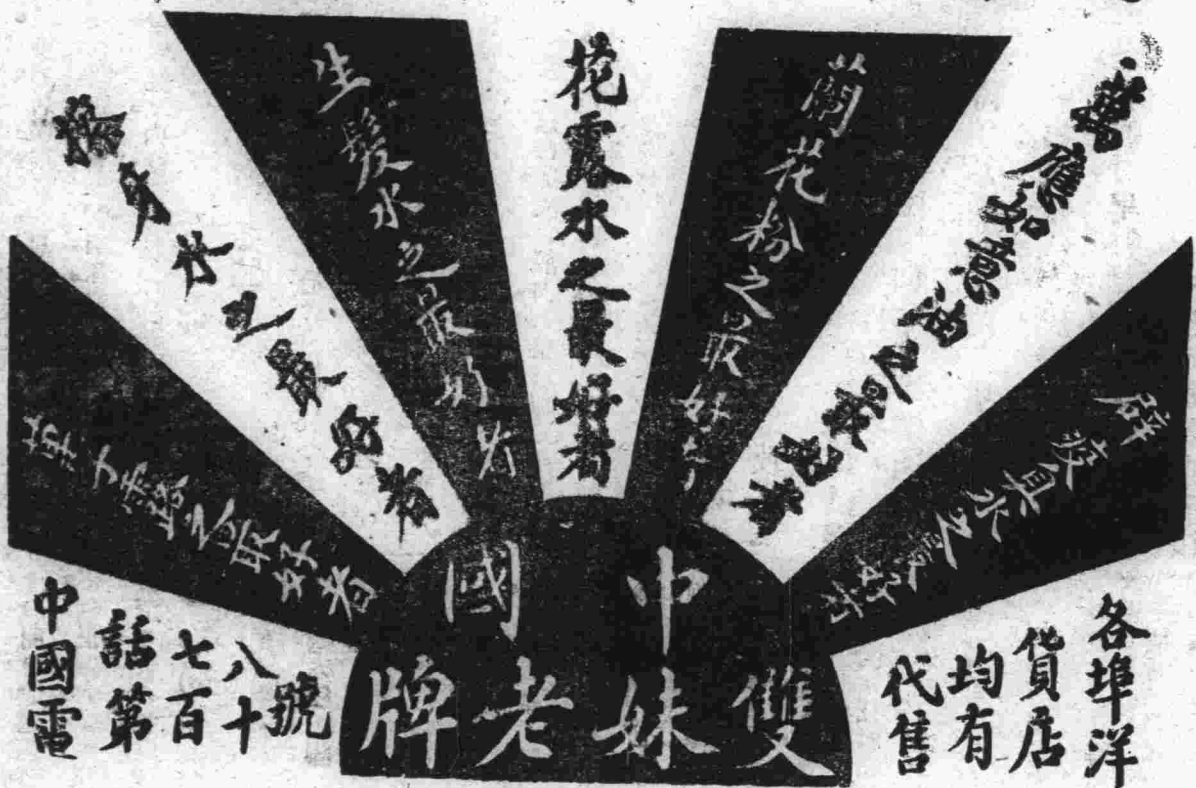 辟疫臭水之最好者
萬應如意油之最好者
蘭花粉之最好者
花露水之最好者
生髮水之最好者
搽身水之最好者
之最好者
中國
雙妹老牌
各埠洋
貨店
均有
代售
中國電
話第
七百
八十
號